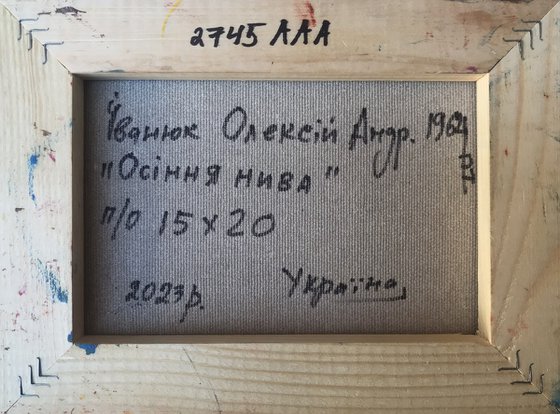 2745 AAA
Іванюк Олексій Андр. 1964
"Осіння нива"
п/о 15 х 20
2023р.
Україна